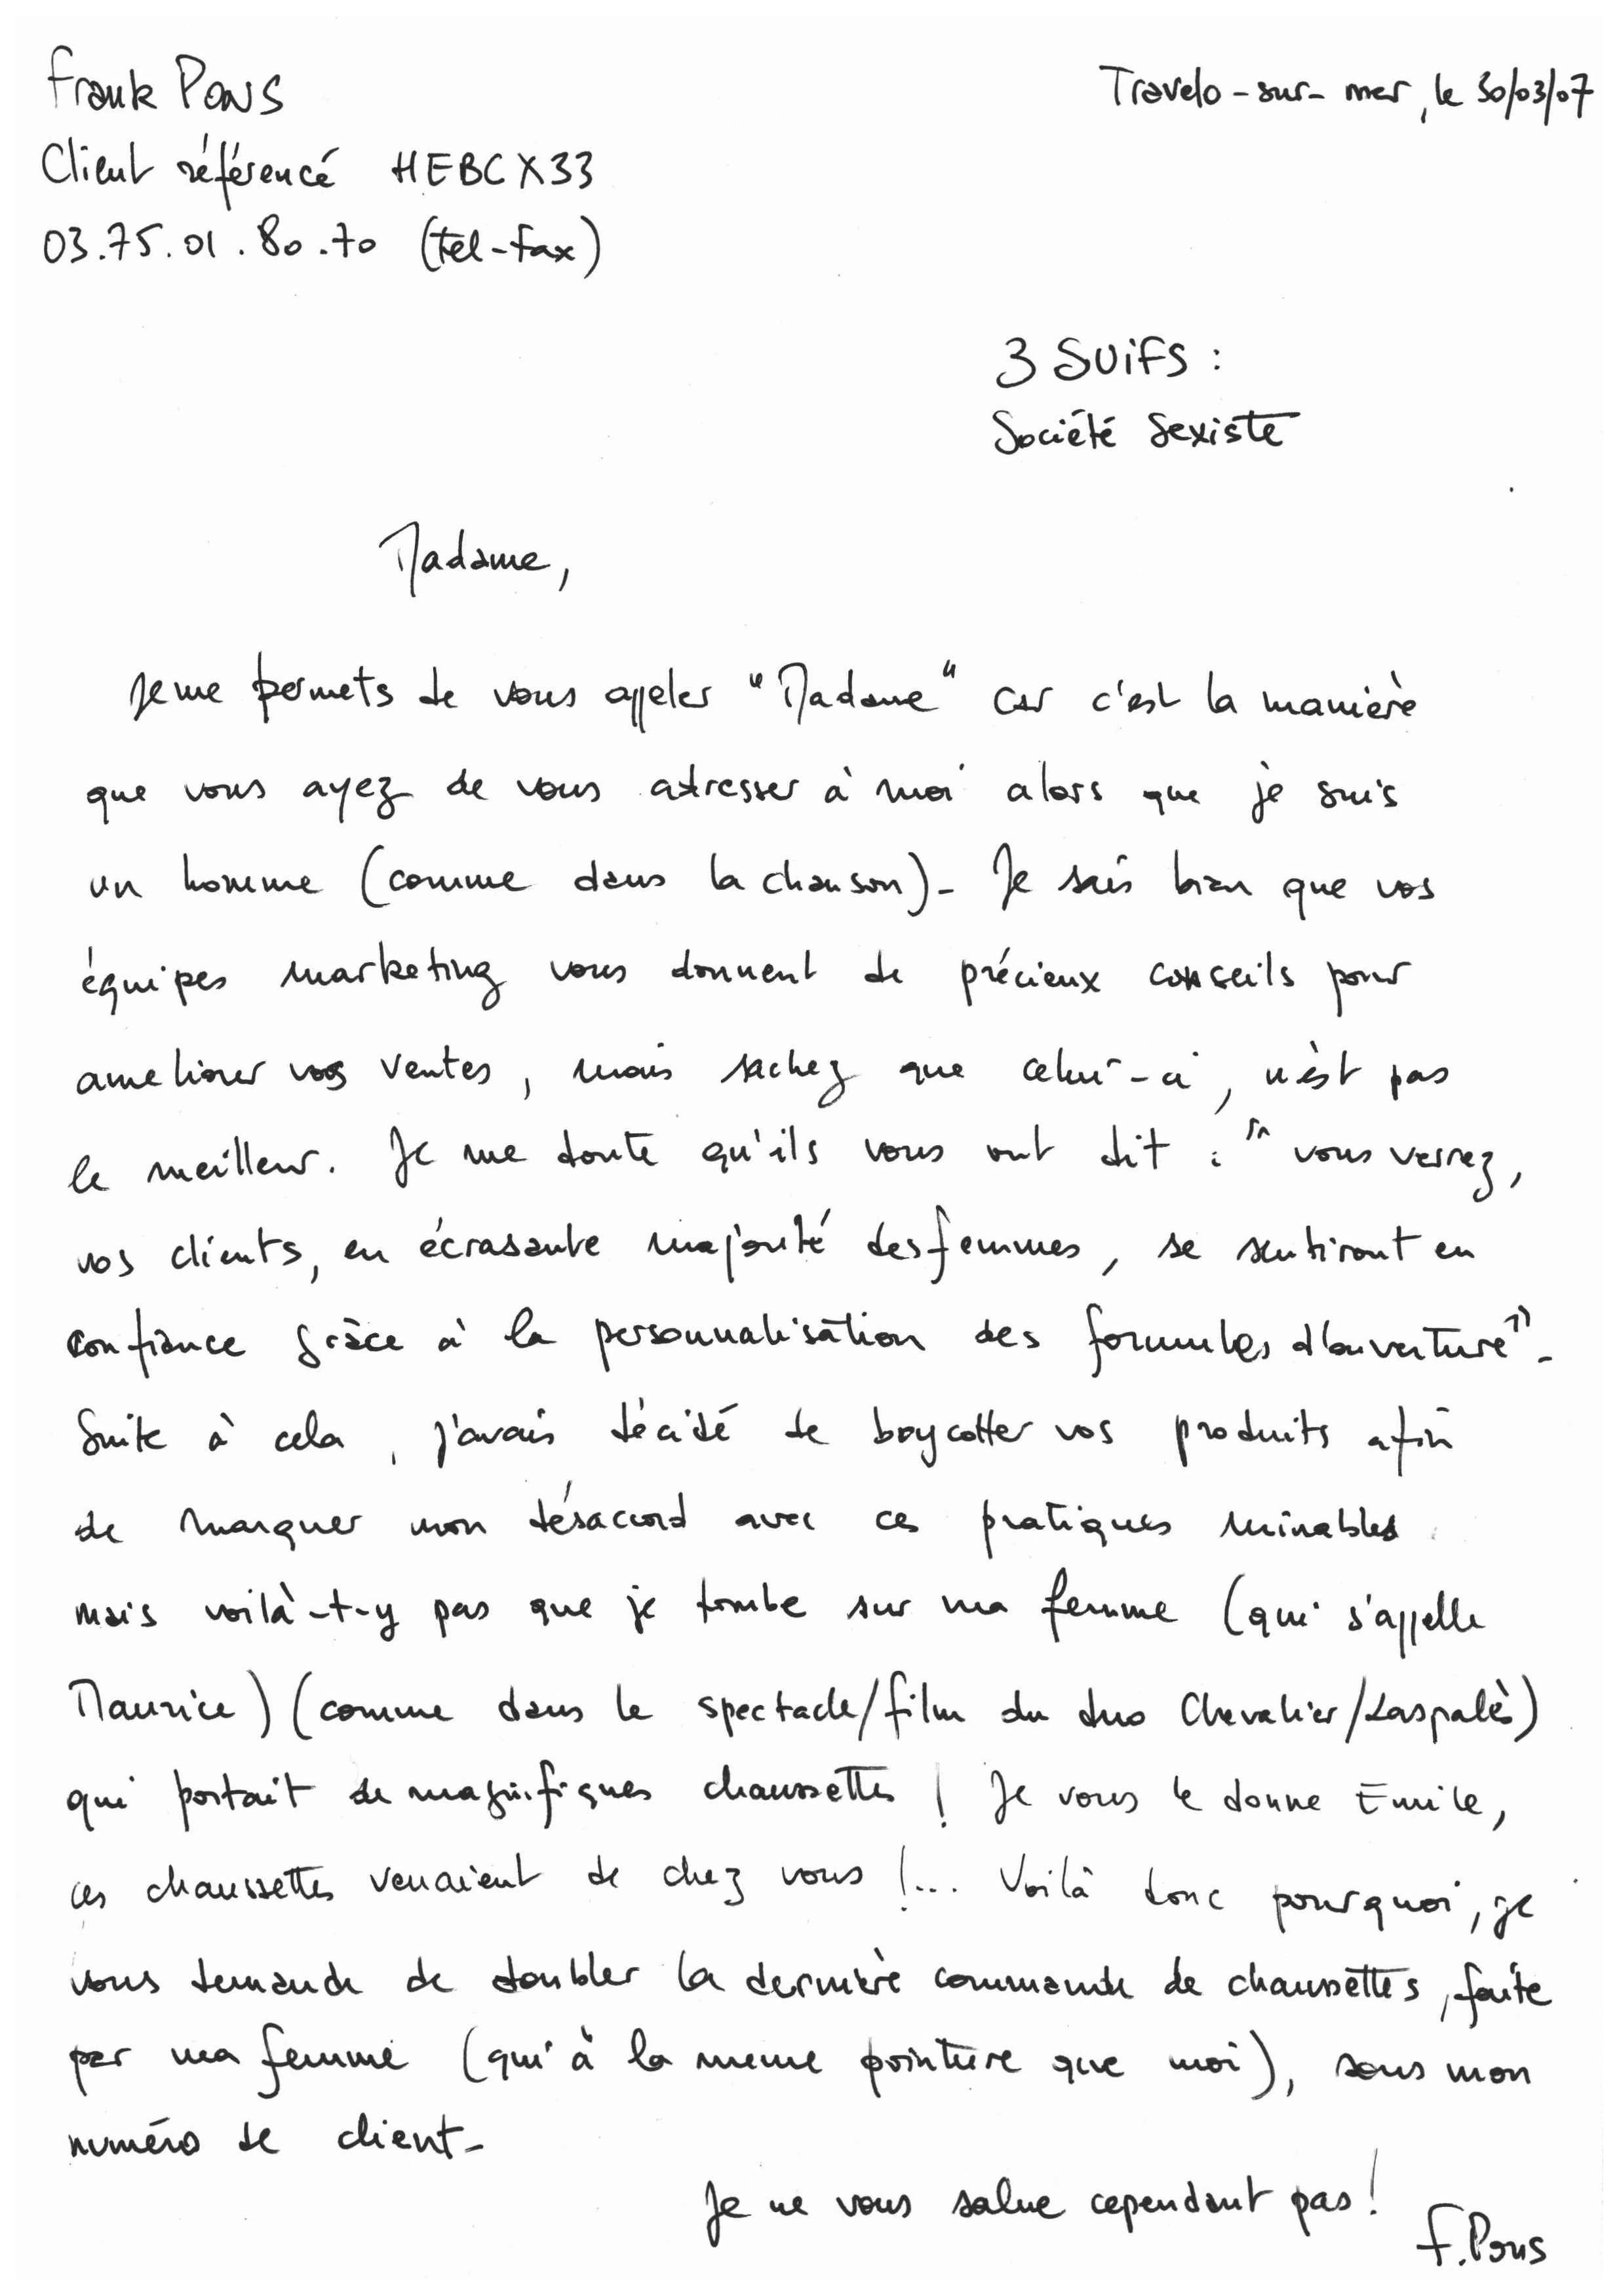 Frank Pons
Travelo-sur-mer, le 30/03/07
Client référencé HEBCX33
03.75.01.80.70 (tel-fax)
3 SUIFS :
Société Sexiste
Madame,
Je me permets de vous appeler "Madame" car c'est la manière
que vous ayez de vous adresser à moi alors que je suis
un homme (comme dans la chanson). Je sais bien que vos
équipes marketing vous donnent de précieux conseils pour
ameliorer vos ventes, mais sachez que celui-ci, n'est pas
le meilleur. Je me doute qu'ils vous ont dit : "vous verrez,
vos clients, en écrasante majorité des femmes, se sentiront en
confiance grâce à la personnalisation des formules d'ouverture".
Suite à cela, j'avais décidé de boycotter vos produits afin
de marquer mon désaccord avec ces pratiques minables
mais voilà-t-y pas que je tombe sur ma femme (qui s'appelle
Maurice) (comme dans le spectacle/film du duo Chevalier/Laspalès)
qui portait de magnifiques chaussettes ! Je vous le donne Emile,
ces chaussettes venaient de chez vous !... Voilà donc pourquoi, je
vous demande de doubler la dernière commande de chaussettes, faite
par ma femme (qui à la meme pointure que moi), sous mon
numéro de client.
Je ne vous salue cependant pas !
F.Pons